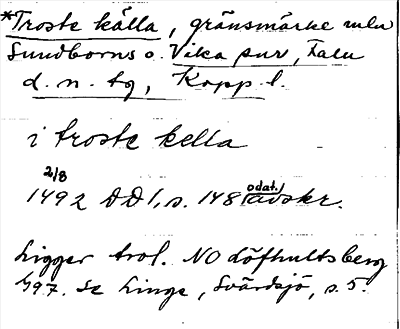 *Troste källa, gränsmärke mln
Sundborns o. Vika snr, Falu
d. n. tg, Kopp l.
i troste kella
2/8
1492 DD 1, s. 148 (odat.) avskr.
Ligger trol. NO Löfhultsberg
197. Se Linge, Svärdsjö, s. 5.